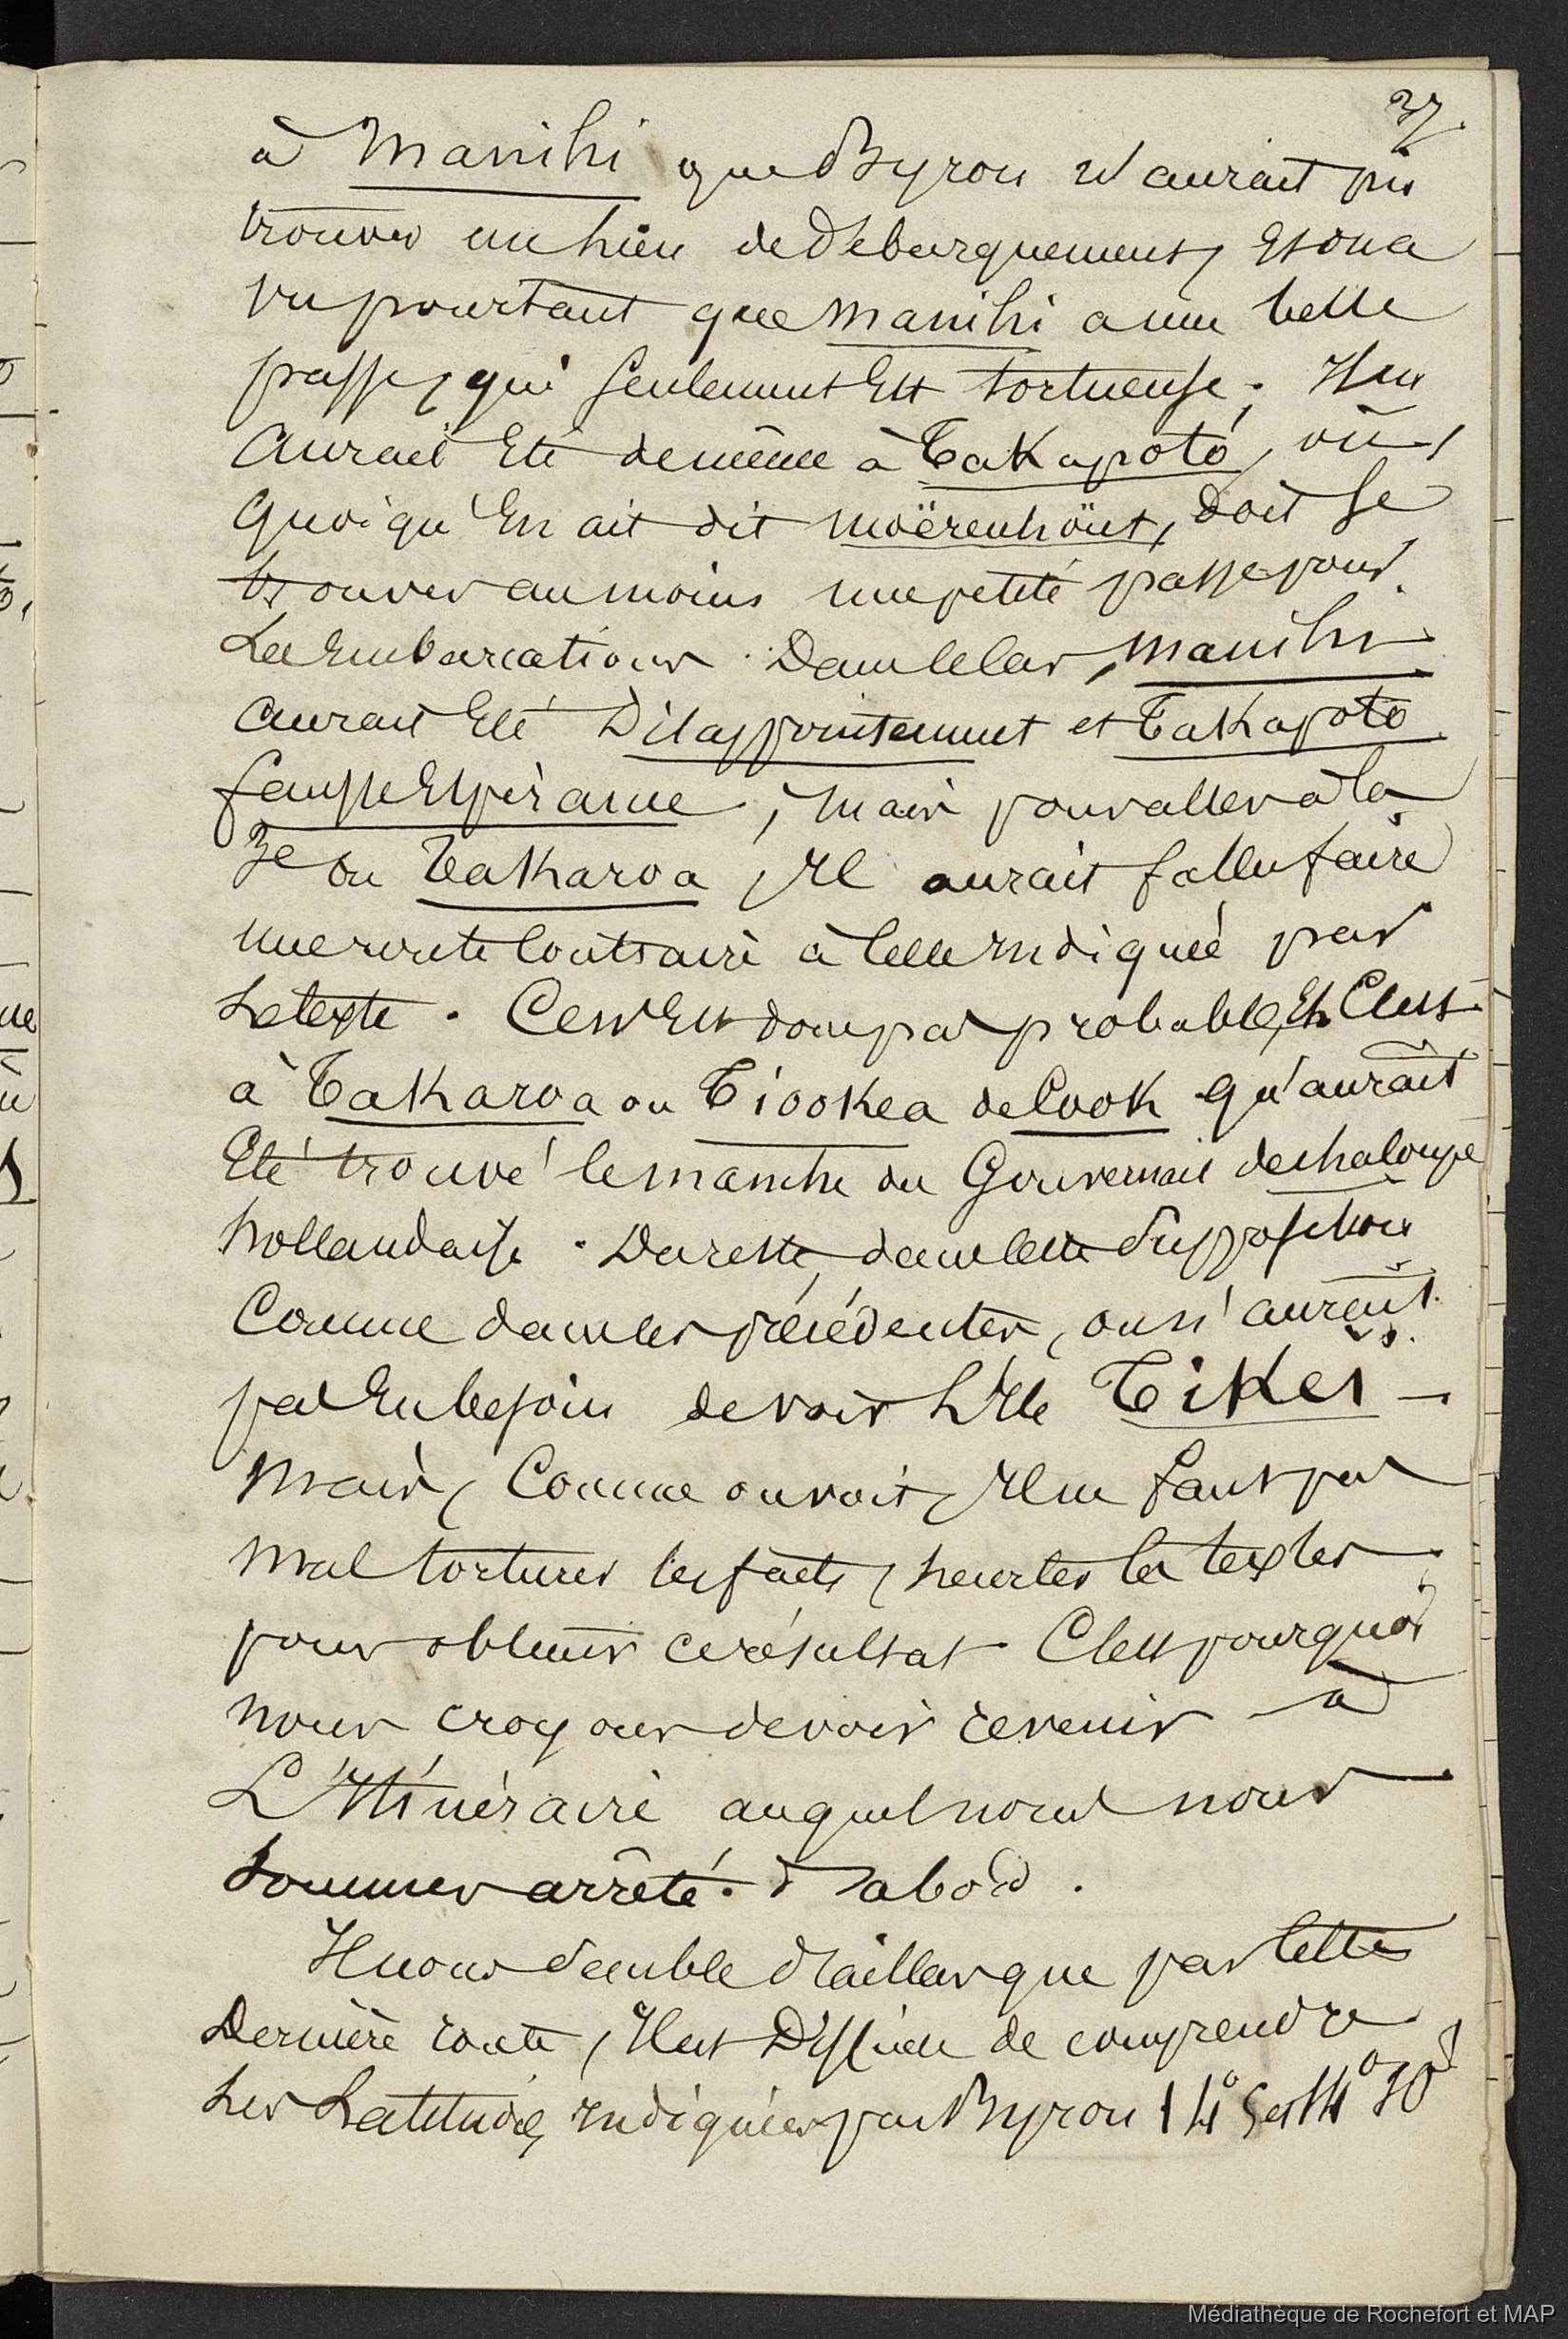 37.
à Manihi que Byron n'aurait pû
trouver un lieu de débarquement, Et on a
vu pourtant que Manihi a une belle
passe, qui seulement Est tortueuse. Il en
aurait Eté de même à Takapoto, où,
quoiqu'En ait dit Moërenhoüt, doit se
trouver au moins une petite passe pour
Les Embarcations. Dans le cas, Manihi
aurait Eté Disappointement et Takapoto
fausse Espérance ; mais pour aller à la
3e ou Takaroa, Il aurait fallu faire
une route contraire à celle Indiquée par
Le texte. Ce n'Est donc pas probable, Et C'est
à Takaroa ou Tiookea de Cook qu'aurait
Eté trouvé le manche du Gouvernail de chaloupe
hollandaise. Du reste, dans cette supposition
Comme dans les précédentes, on n'aurait
pas Eu besoin de voir L'Ile Tikei –
Mais, Comme on voit, Il ne faut pas
mal torturer les faits, heurter les textes
pour obtenir ce résultat. C'est pourquoi
nous croyons devoir revenir à
L'Itinéraire auquel nous nous
sommes arrêté d'abord.
Il nous semble d'ailleurs que par cette
Dernière route, Il est Difficile de comprendre
Les Latitudes Indiquées par Byron 14° 5' et 14° 30'
Médiathèque de Rochefort et MAP